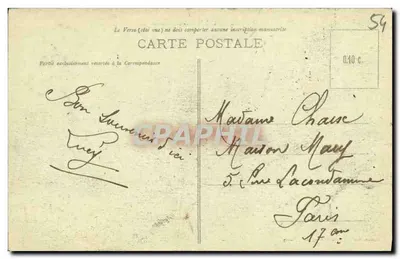 Le Verso (côté vue) ne doit comporter aucune inscription manuscrite
CARTE POSTALE
54
0.10 c.
Partie exclusivement réservée à la Correspondance
Bon souvenir d'ici
Lucy
Madame Chaise
Maison
5. Rue Lacondamine
Paris
17 eme
CPAPHIL